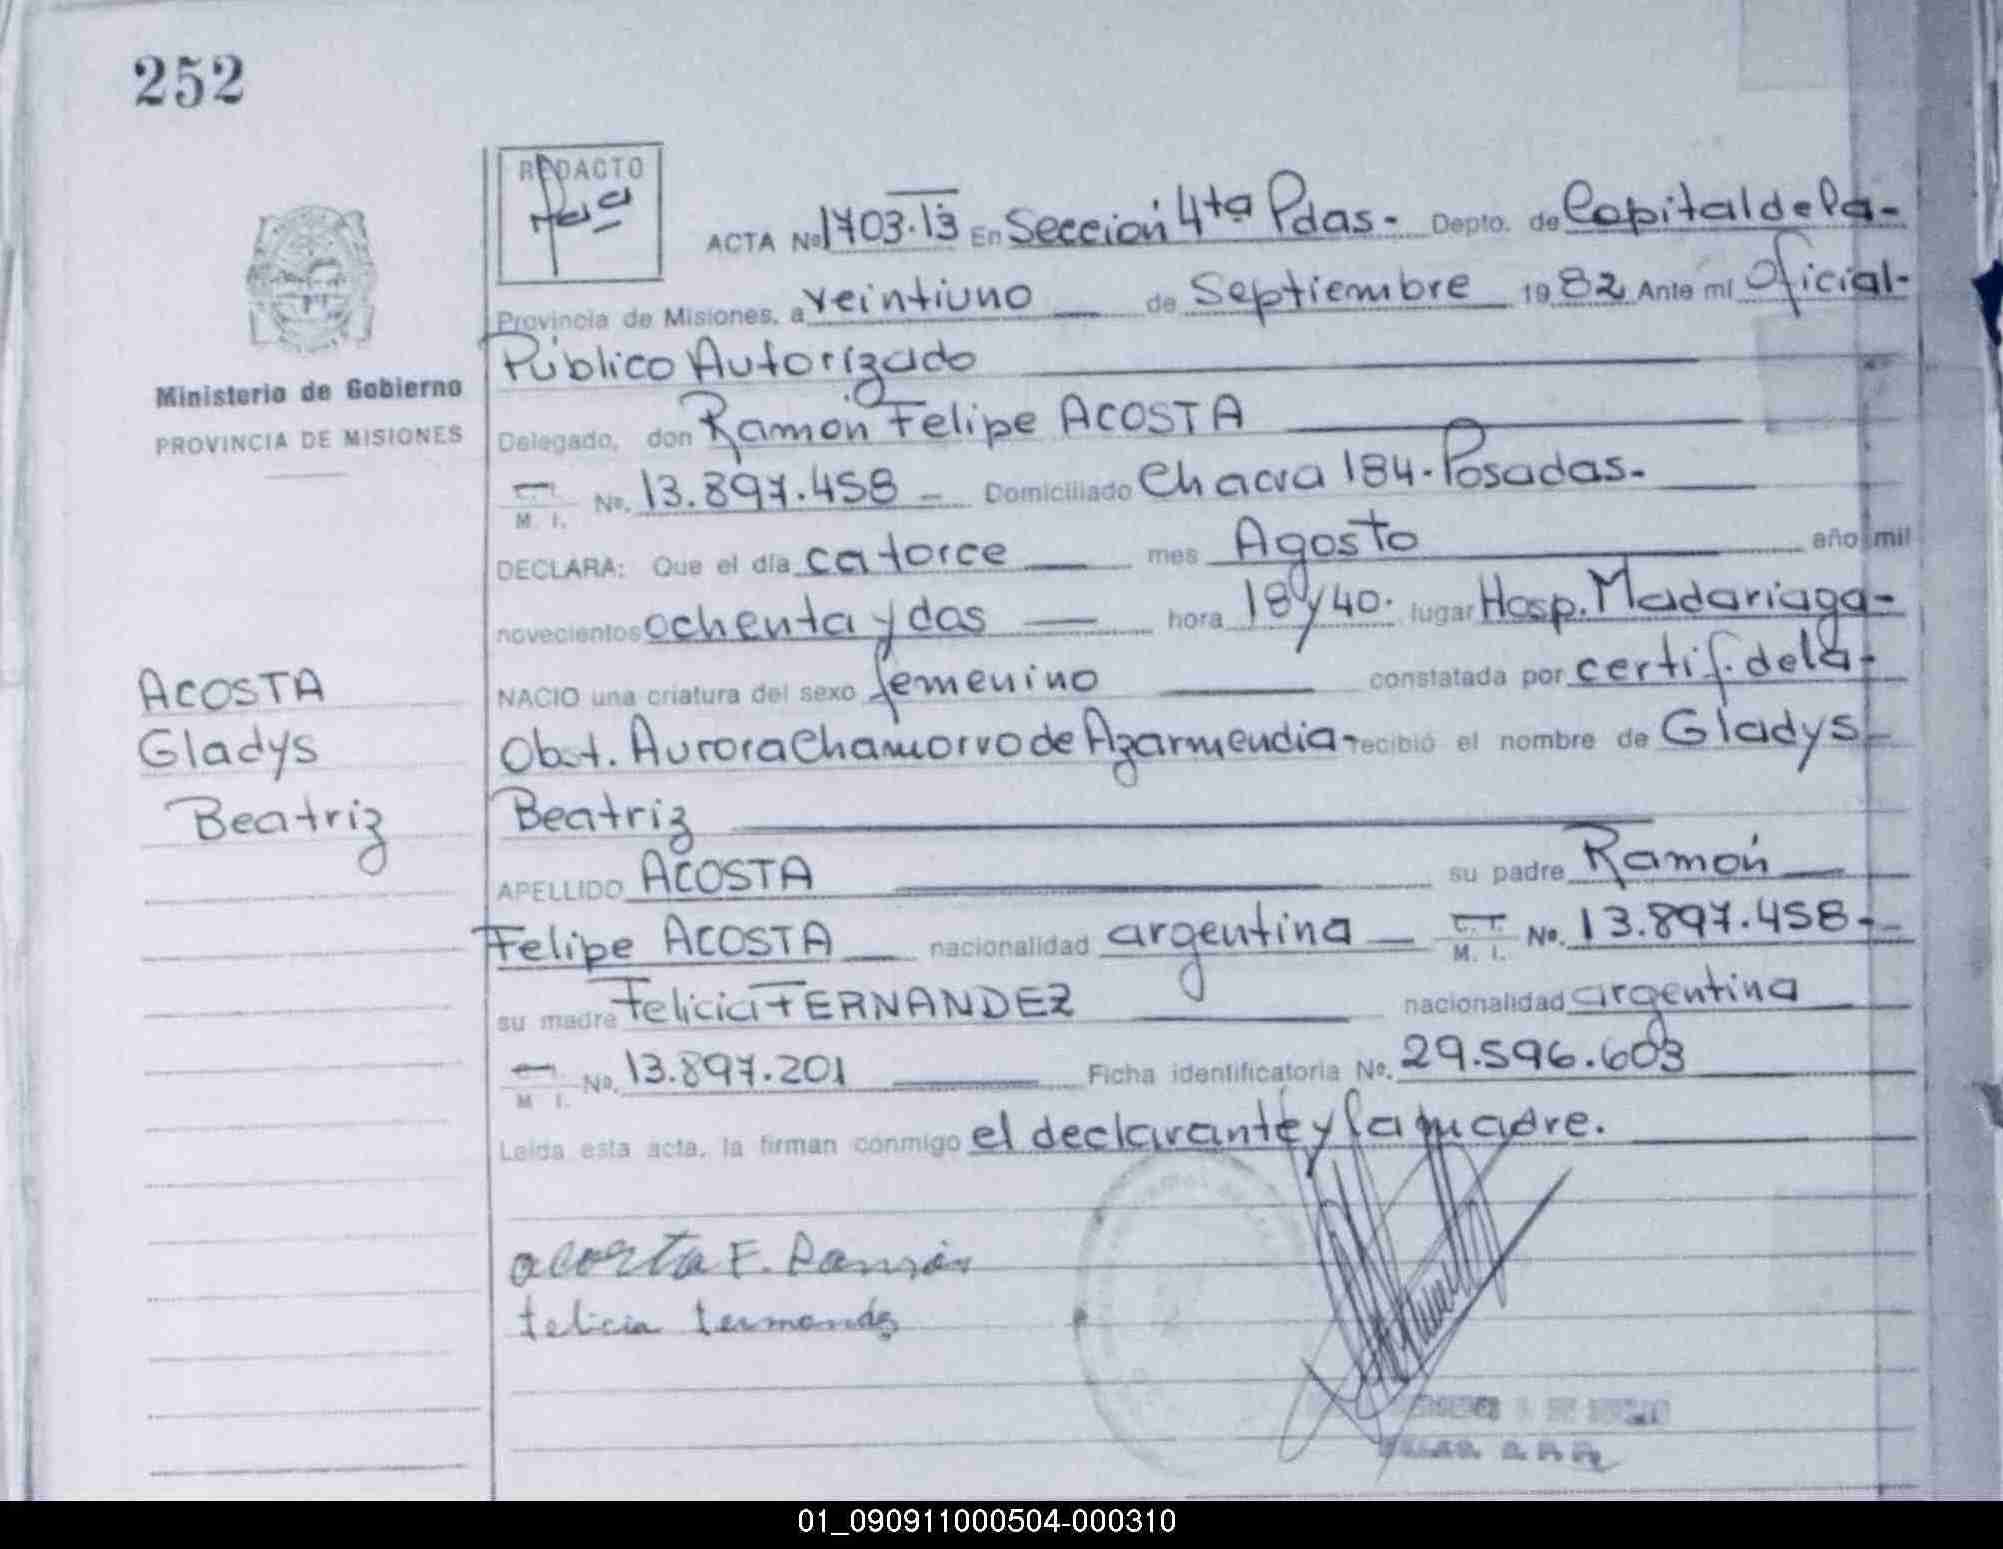 252
REDACTO
ACTA Nº 1703.13 En Sección 4ta Pdas- Depto. de Capital de la-
Provincia de Misiones, a veintiuno de Septiembre 1982 Ante mí Oficial-
Público Autorizado
Ministerio de Gobierno
PROVINCIA DE MISIONES
Delegado, don Ramón Felipe ACOSTA
M. I. Nº. 13.897.458 - Domiciliado Chacra 184-Posadas-
DECLARA: Que el día catorce mes Agosto año mil
novecientos ochenta y dos hora 18y40. lugar Hosp. Madariaga-
NACIO una criatura del sexo femenino constatada por certif. de la-
ACOSTA
Gladys
Beatriz
Obst. Aurora Chamorro de Azarmendia- recibió el nombre de Gladys
Beatriz
APELLIDO ACOSTA su padre Ramón
Felipe ACOSTA nacionalidad argentina M. I. Nº. 13.897.458-
su madre Felicia FERNANDEZ nacionalidad argentina
M. I. Nº. 13.897.201 Ficha identificatoria Nº. 29.596.603
Leída esta acta, la firman conmigo el declarante y la madre.
acosta F. Ramón
felicia
01_090911000504-000310